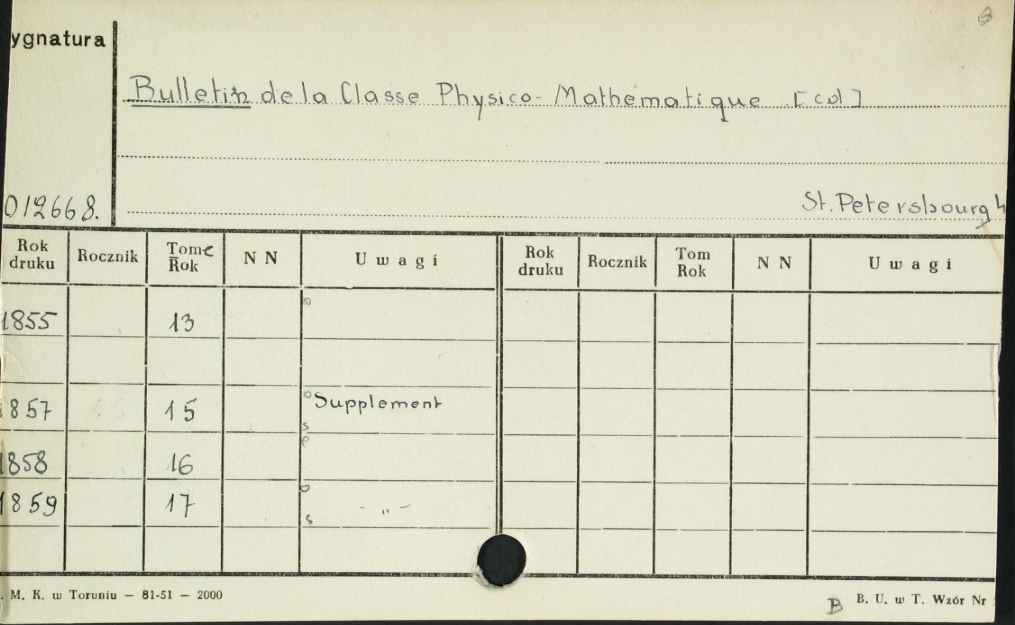 ygnatura
Bulletin de la Classe Physico-Mathématique [cd]
012668.
St. Petersbourgh
Rok druku Rocznik Tome Rok N N Uwagi Rok druku Rocznik Tom Rok N N Uwagi
1855 13
1857 15 Supplement
1858 16
1859 17 - „ -
. M. K. w Toruniu — 81-51 — 2000
B B. U. w T. Wzór Nr